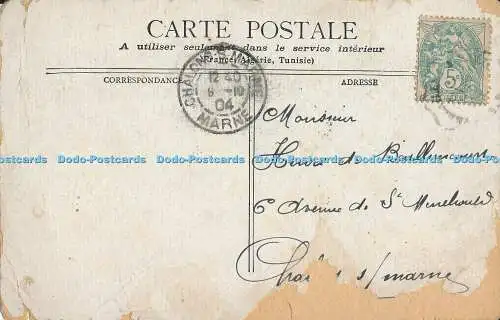 CARTE POSTALE
A utiliser seulement dans le service intérieur
(France, Algérie, Tunisie)
CORRESPONDANCE
ADRESSE
CHALONS-S-MARNE
12 40
8 -10
04
MARNE
5c
Monsieur
Dodo-Postcards Dodo-Postcards Dodo-Postcards Dodo-Postcards Dodo-Postcards
de
6 Avenue de Ste Menehould
s/marne